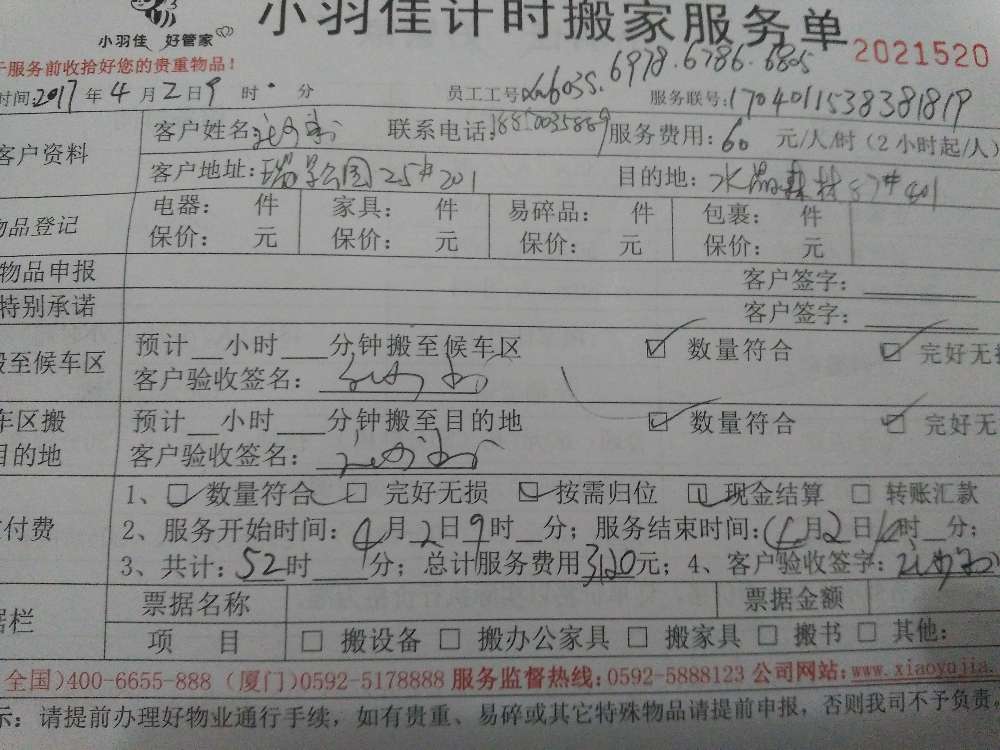 小羽佳 好管家
小羽佳计时搬家服务单
2021520
于服务前收拾好您的贵重物品！
时间:2017年4月2日9时 分 员工工号 6035.6978.6786.6805 服务联号:1704011538381819
客户资料
客户姓名: 联系电话: 服务费用:60元/人/时(2小时起/人)
客户地址:瑞景公园25#201 目的地:水晶森林 #401
物品登记
电器： 件 家具： 件 易碎品： 件 包裹： 件
保价： 元 保价： 元 保价： 元 保价： 元
物品申报 客户签字:
特别承诺 客户签字:
搬至候车区
预计__小时___分钟搬至候车区 ☑ 数量符合 ☑ 完好无损
客户验收签名:
车区搬
目的地
预计__小时___分钟搬至目的地 ☑ 数量符合 ☑ 完好无
客户验收签名:
付费
1、☑数量符合 ☑ 完好无损 ☑按需归位 ☑现金结算 □ 转账汇款
2、服务开始时间:4月2日9时__分; 服务结束时间:4月2日 时__分;
3、共计:52时____分; 总计服务费用3120元; 4、客户验收签字:
据栏
票据名称 票据金额
项 目 □ 搬设备 □ 搬办公家具 □ 搬家具 □ 搬书 □ 其他:
全国)400-6655-888 (厦门)0592-5178888 服务监督热线:0592-5888123 公司网站:www.xiaoyujia.
示：请提前办理好物业通行手续，如有贵重、易碎或其它特殊物品请提前申报，否则我司不予负责。